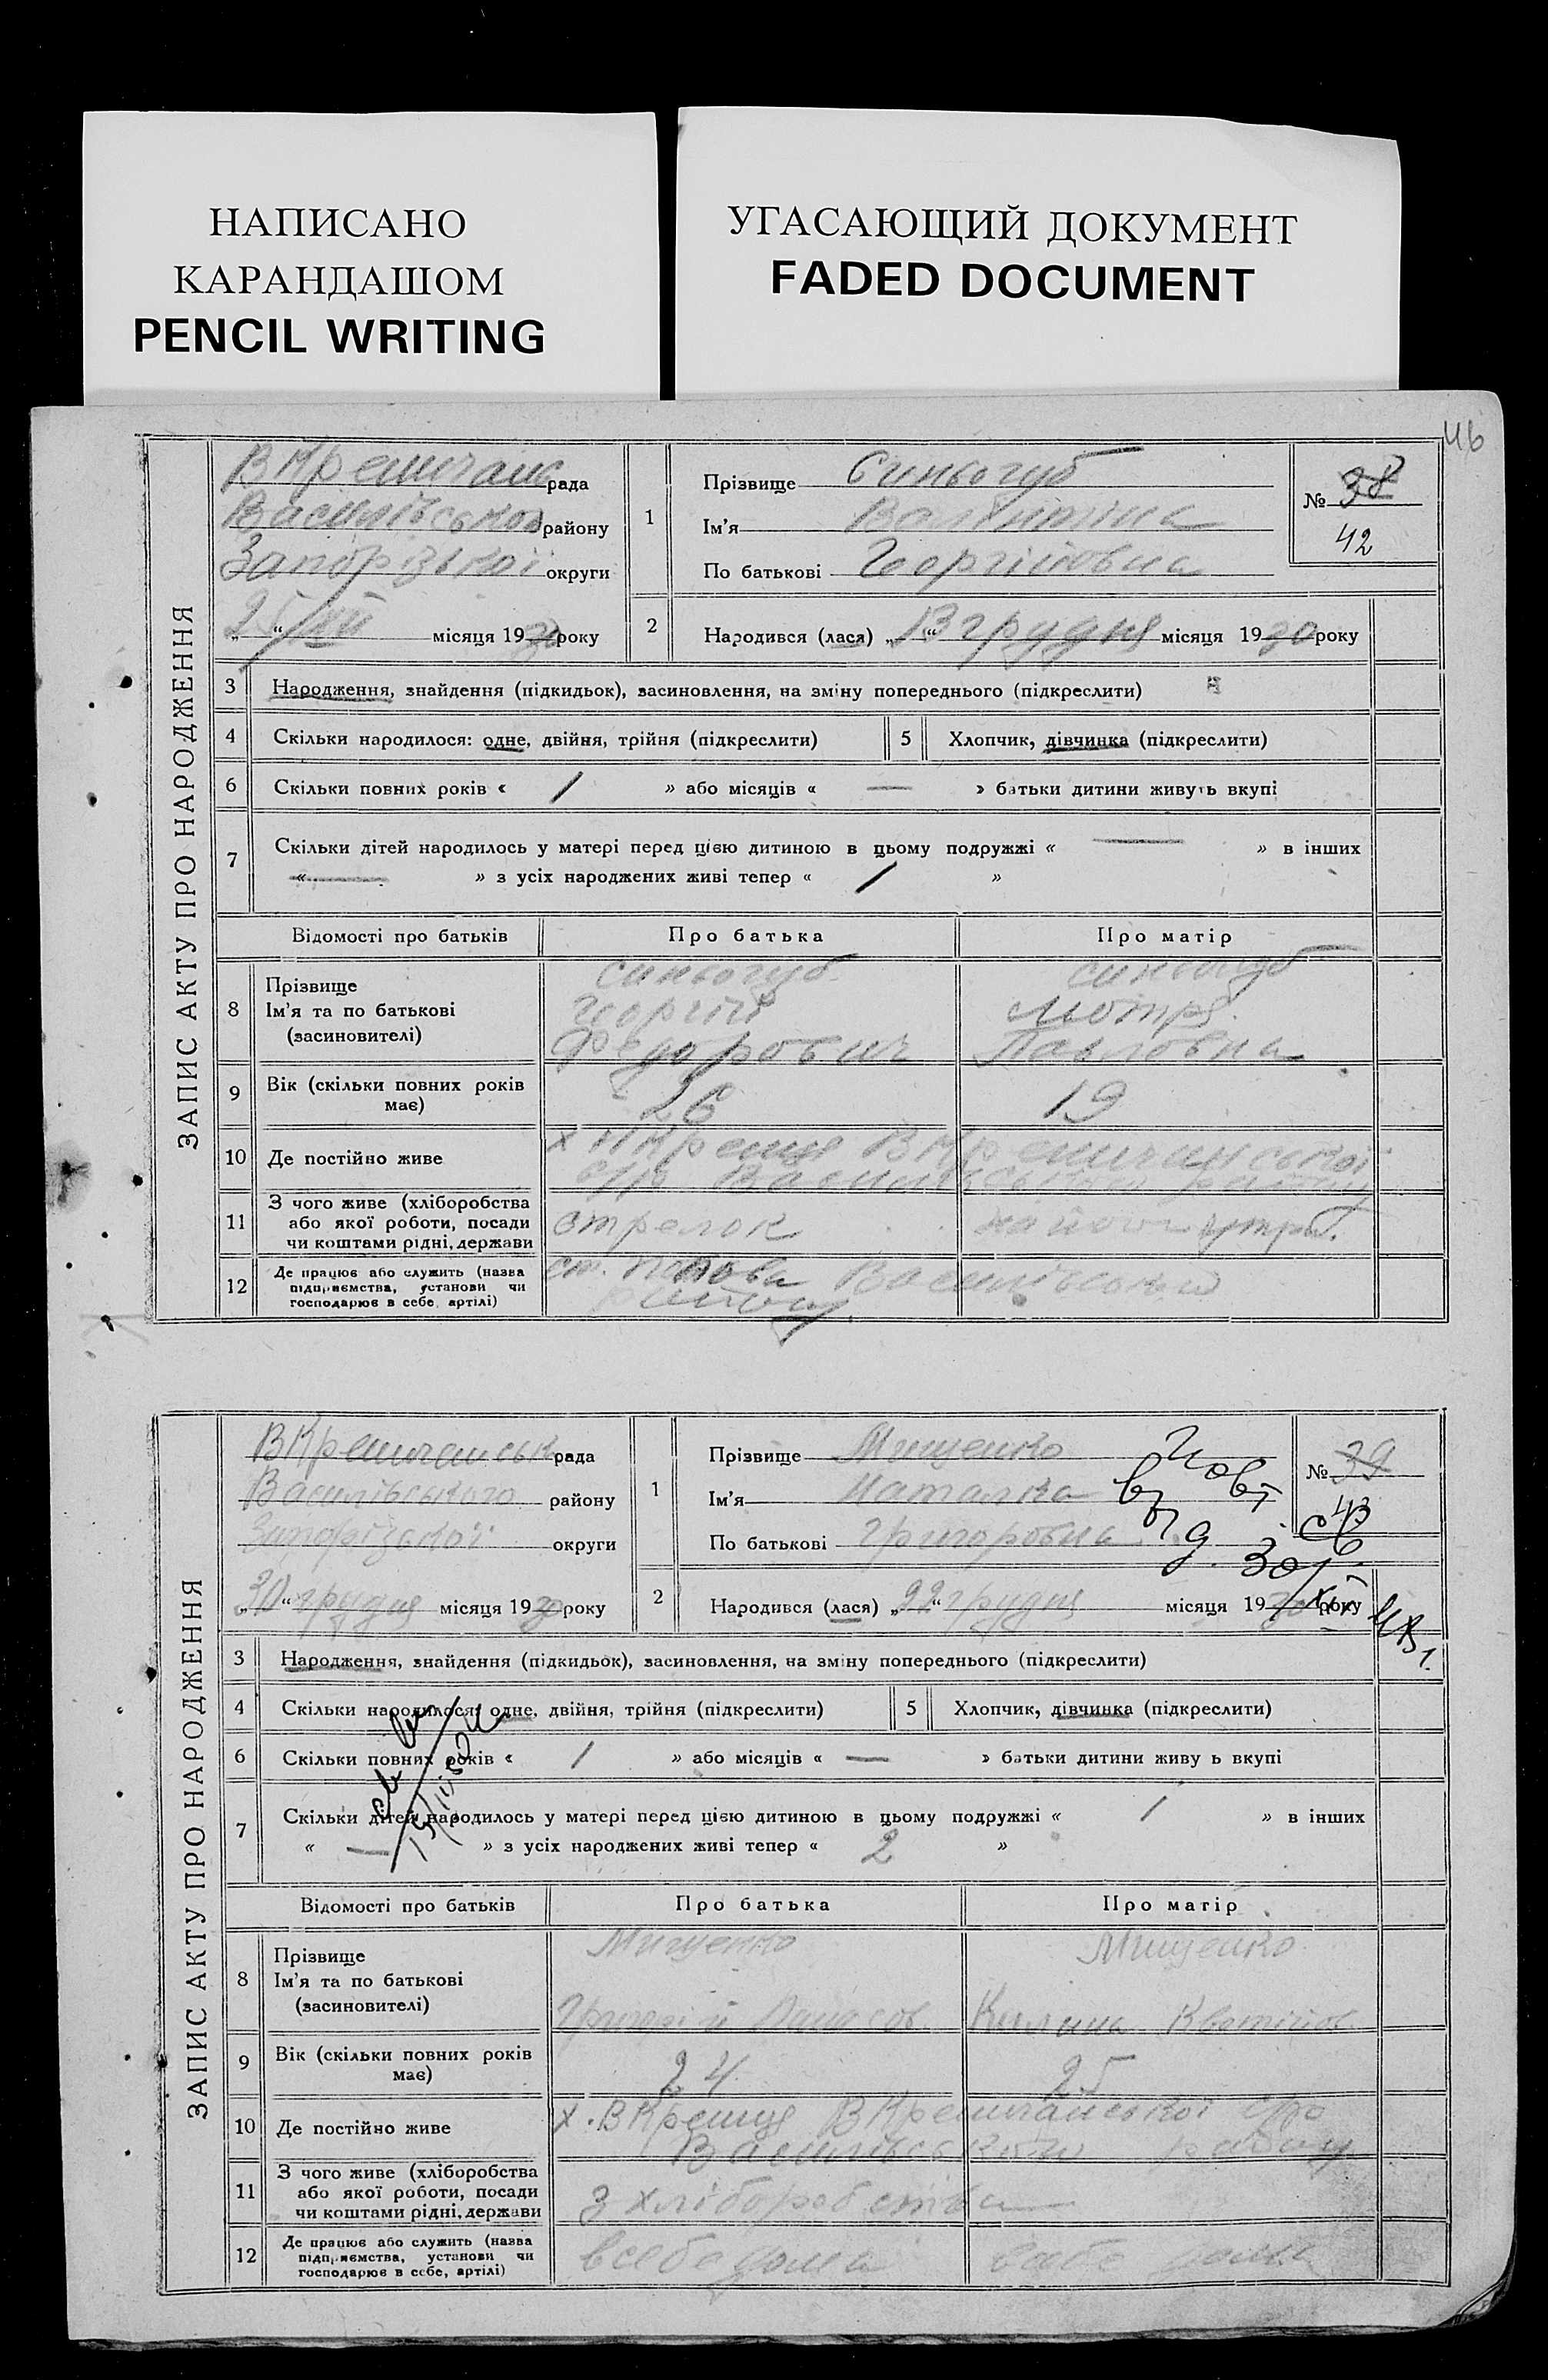 НАПИСАНО
КАРАНДАШОМ
PENCIL WRITING
УГАСАЮЩИЙ ДОКУМЕНТ
FADED DOCUMENT
46
ЗАПИС АКТУ ПРО НАРОДЖЕННЯ
рада
району
Запорізької округи
25/XII місяця 1930 року
1
Прізвище Синьогуб
Ім'я Валентина
По батькові Георгіїовна
№ 38
42
2 Народився (лася) „13“ грудня місяця 1930 року
3 Народження, знайдення (підкидьок), засиновлення, на зміну попереднього (підкреслити)
4 Скільки народилося: одне, двійня, трійня (підкреслити) 5 Хлопчик, дівчинка (підкреслити)
6 Скільки повних років « 1 » або місяців « — » батьки дитини живуть вкупі
7 Скільки дітей народилось у матері перед цією дитиною в цьому подружжі « — » в інших
« — » з усіх народжених живі тепер « 1 »
Відомості про батьків Про батька Про матір
8 Прізвище Синьогуб Синьогуб
Ім'я та по батькові Георгій Мотря
(засновителі) Федорович Павловна
9 Вік (скільки повних років має) 26 19
10 Де постійно живе
району
11 З чого живе (хліборобства або якої роботи, посади чи коштами рідні, держави стрелок
12 Де працює або служить (назва підприємства, установи чи господарює в себе, артілі) ст. Попова Василівського
району
ЗАПИС АКТУ ПРО НАРОДЖЕННЯ
рада
Василівського району
Запорізької округи
„30“ грудня місяця 1930 року
1
Прізвище Мищенко
Ім'я Наталка
По батькові Григоровна
№ 39
43
2 Народився (лася) „22“ грудня місяця 1930 року
3 Народження, знайдення (підкидьок), засиновлення, на зміну попереднього (підкреслити)
4 Скільки народилося: одне, двійня, трійня (підкреслити) 5 Хлопчик, дівчинка (підкреслити)
6 Скільки повних років « 1 » або місяців « — » батьки дитини живу ь вкупі
7 Скільки дітей народилось у матері перед цією дитиною в цьому подружжі « 1 » в інших
« — » з усіх народжених живі тепер « 2 »
Відомості про батьків Про батька Про матір
8 Прізвище Мищенко Мищенко
Ім'я та по батькові
(засиновителі) Григорій Панасов. Килина
9 Вік (скільки повних років має) 24 25
10 Де постійно живе х. В Крениця
Василівського району
11 З чого живе (хліборобства або якої роботи, посади чи коштами рідні, держави з хліборобства
12 Де працює або служить (назва підприємства, установи чи господарює в себе, артілі) в себе дома в себе дома